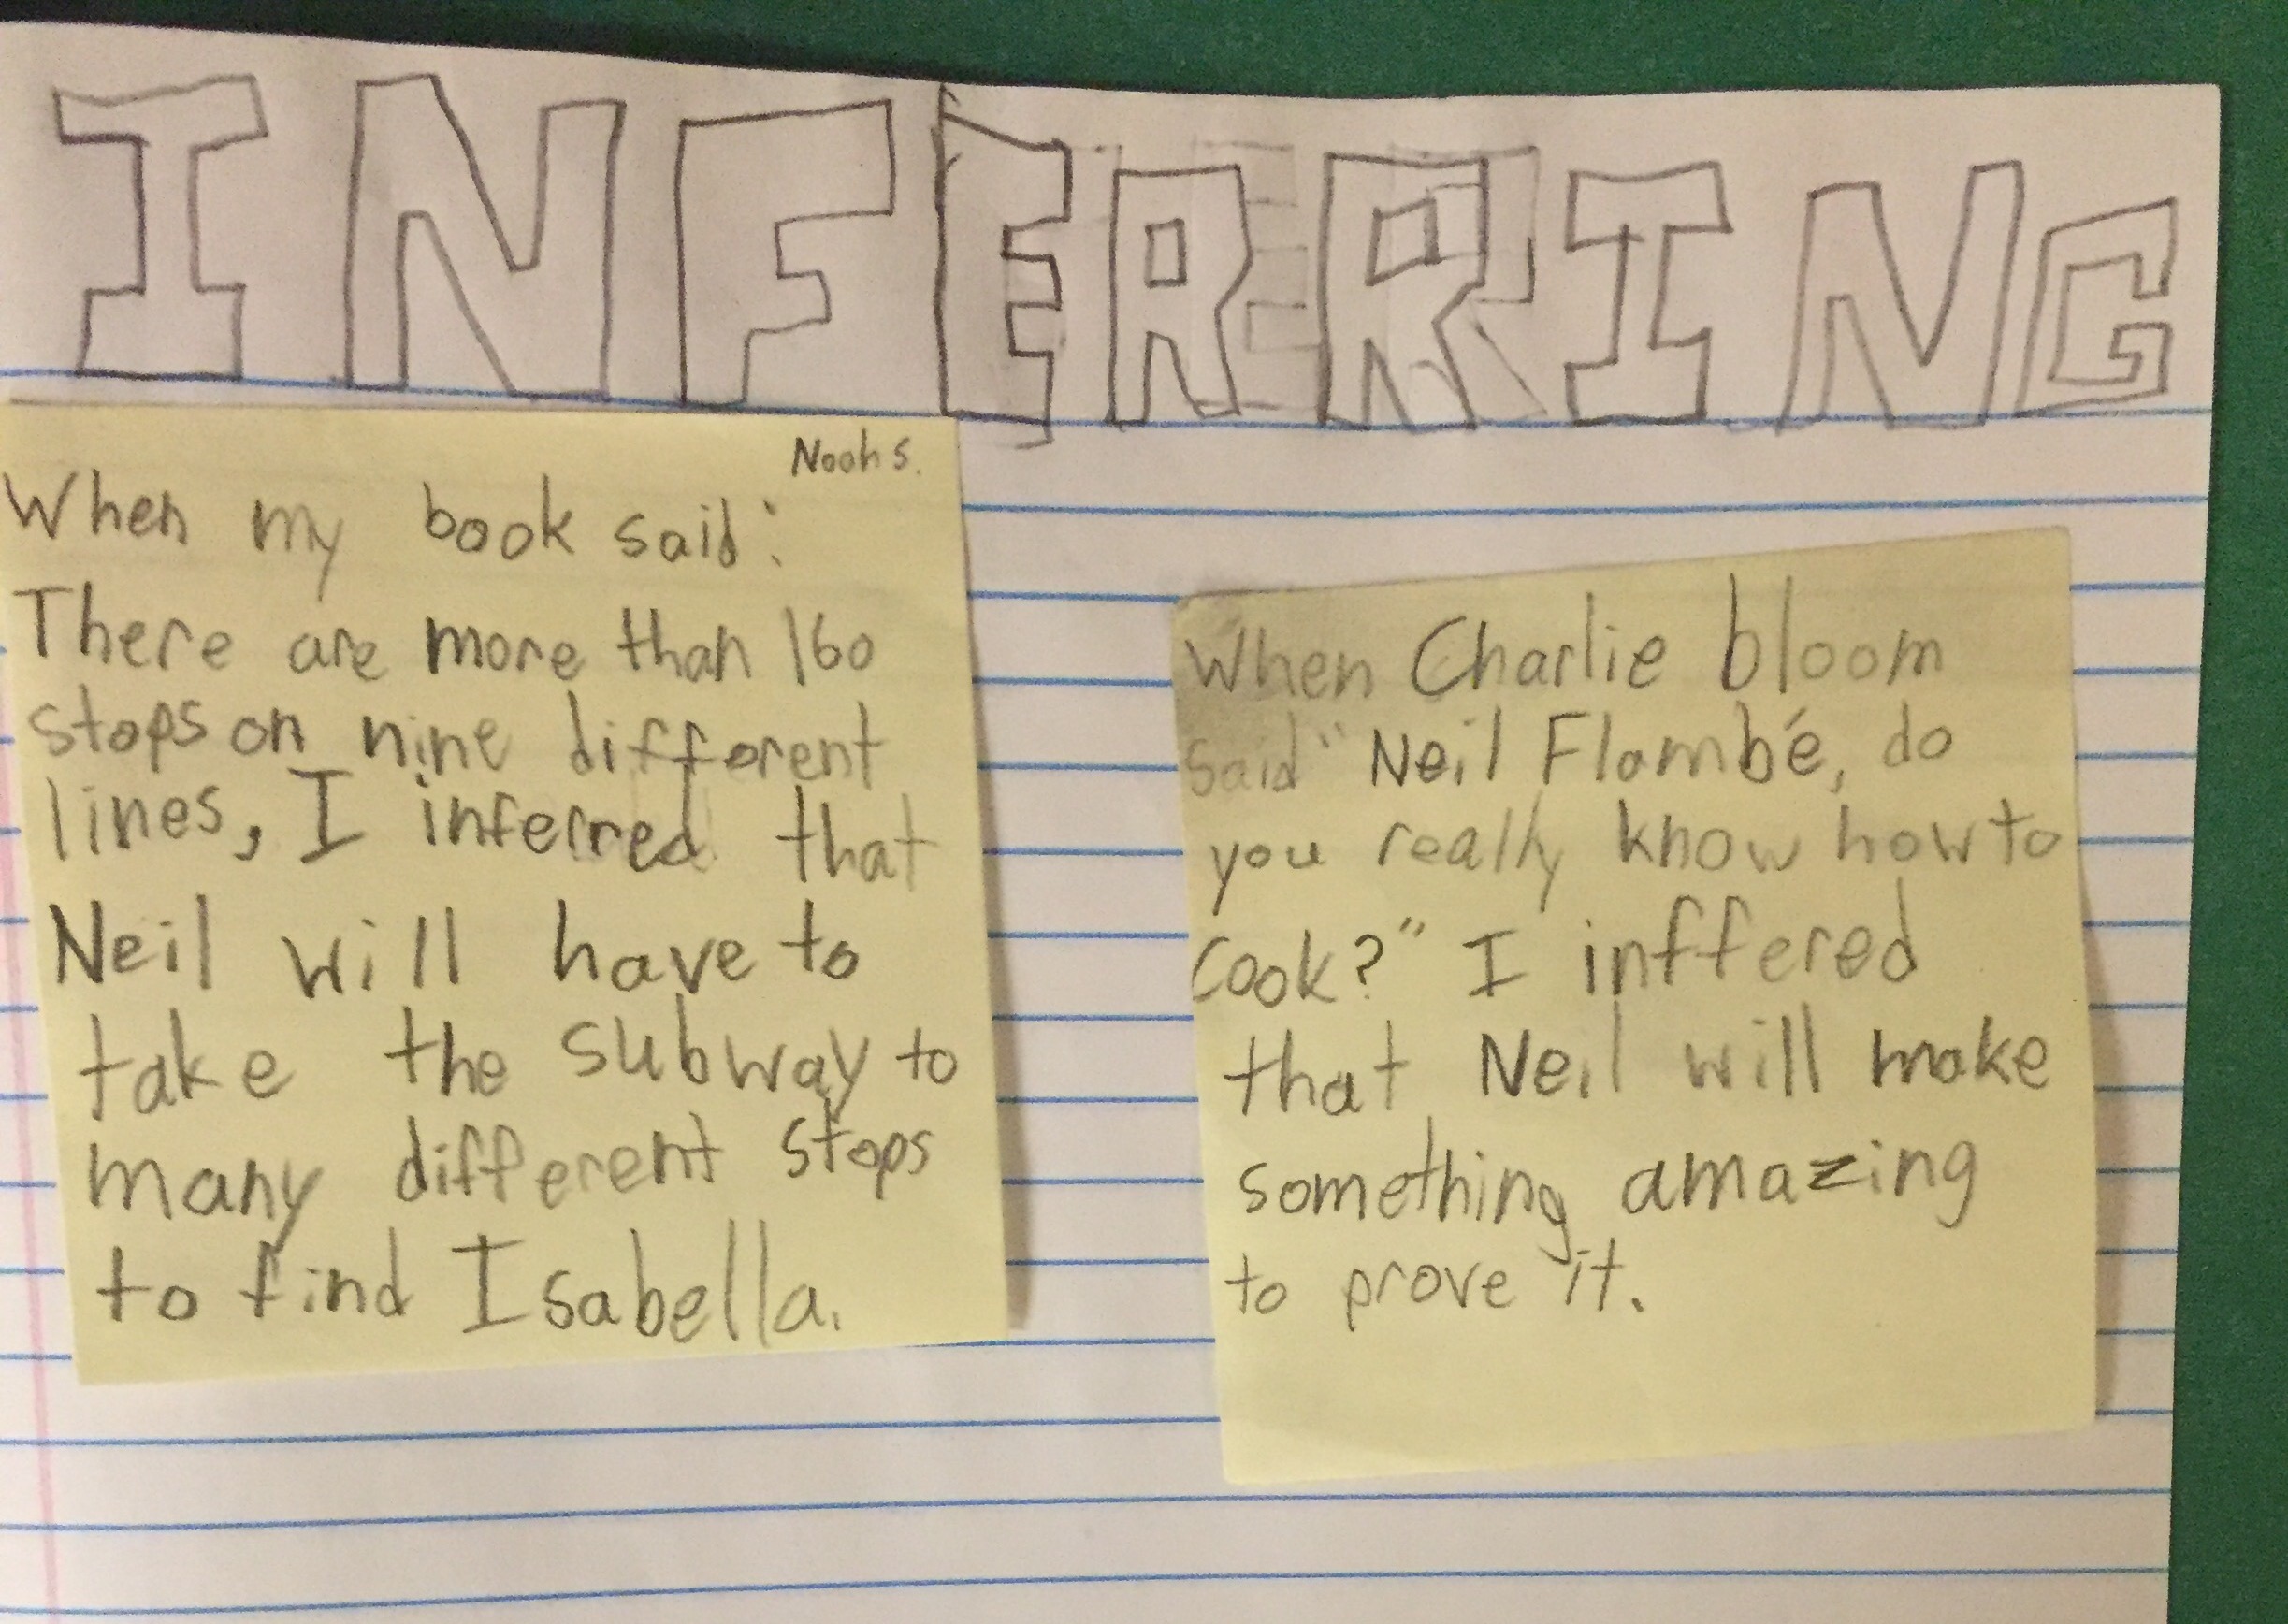 INFERRING
Noah S.
When my book said:
There are more than 160
stops on nine different
lines, I inferred that
Neil will have to
take the subway to
many different stops
to find Isabella.
When Charlie bloom
said "Neil Flambé, do
you really know how to
cook?" I inffered
that Neil will make
something amazing
to prove it.